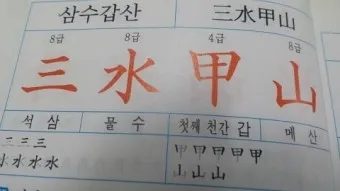 삼수갑산 三水甲山
8급 8급 4급 8급
三 水 甲 山
석 삼 물 수 첫째 천간 갑 메 산
三 三 三 甲 甲 甲 甲 甲
水 水 水 山 山 山